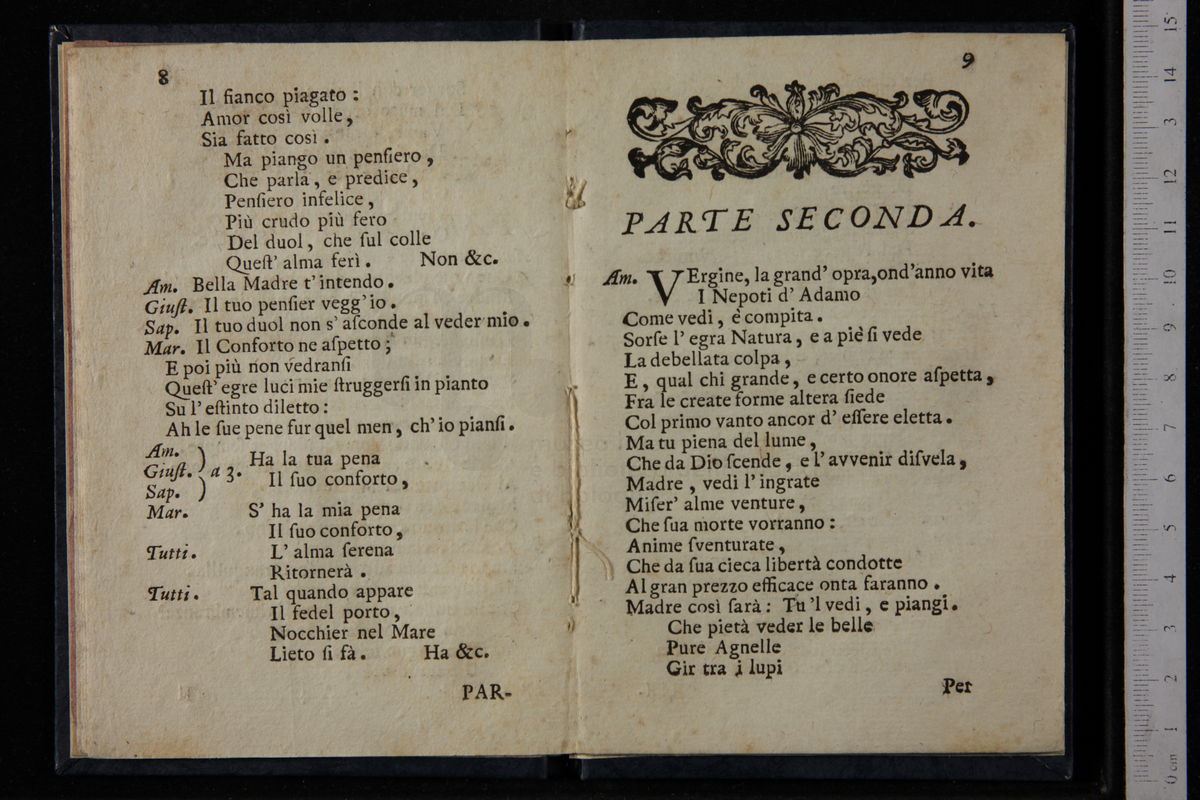 8
Il fianco piagato :
Amor così volle,
Sia fatto così .
Ma piango un penſiero ,
Che parla , e predice ,
Penſiero infelice ,
Più crudo più fero
Del duol , che ſul colle
Queſt' alma ferì . Non &c.
Am. Bella Madre t'intendo .
Giuſt. Il tuo penſier vegg'io .
Sap. Il tuo duol non s'aſconde al veder mio .
Mar. Il Conforto ne aſpetto ;
E poi più non vedranſi
Queſt' egre luci mie ſtruggerſi in pianto
Su l'eſtinto diletto :
Ah le ſue pene fur quel men , ch'io pianſi .
Am. )
Giuſt. ) a 3. Ha la tua pena
Sap. ) Il ſuo conforto ,
Mar. S' ha la mia pena
Il ſuo conforto ,
Tutti. L' alma ſerena
Ritornerà .
Tutti. Tal quando appare
Il fedel porto ,
Nocchier nel Mare
Lieto ſi fà . Ha &c.
PAR-
9
PARTE SECONDA.
Am. VErgine, la grand' opra, ond'anno vita
I Nepoti d' Adamo
Come vedi , è compita .
Sorſe l' egra Natura , e a piè ſi vede
La debellata colpa ,
E , qual chi grande , e certo onore aſpetta ,
Fra le create forme altera ſiede
Col primo vanto ancor d' eſſere eletta .
Ma tu piena del lume ,
Che da Dio ſcende , e l' avvenir diſvela ,
Madre , vedi l' ingrate
Miſer' alme venture ,
Che ſua morte vorranno :
Anime ſventurate ,
Che da ſua cieca libertà condotte
Al gran prezzo efficace onta faranno .
Madre così ſarà : Tu 'l vedi , e piangi .
Che pietà veder le belle
Pure Agnelle
Gir tra i lupi
Per
0 cm 1 2 3 4 5 6 7 8 9 10 11 12 3 14 15